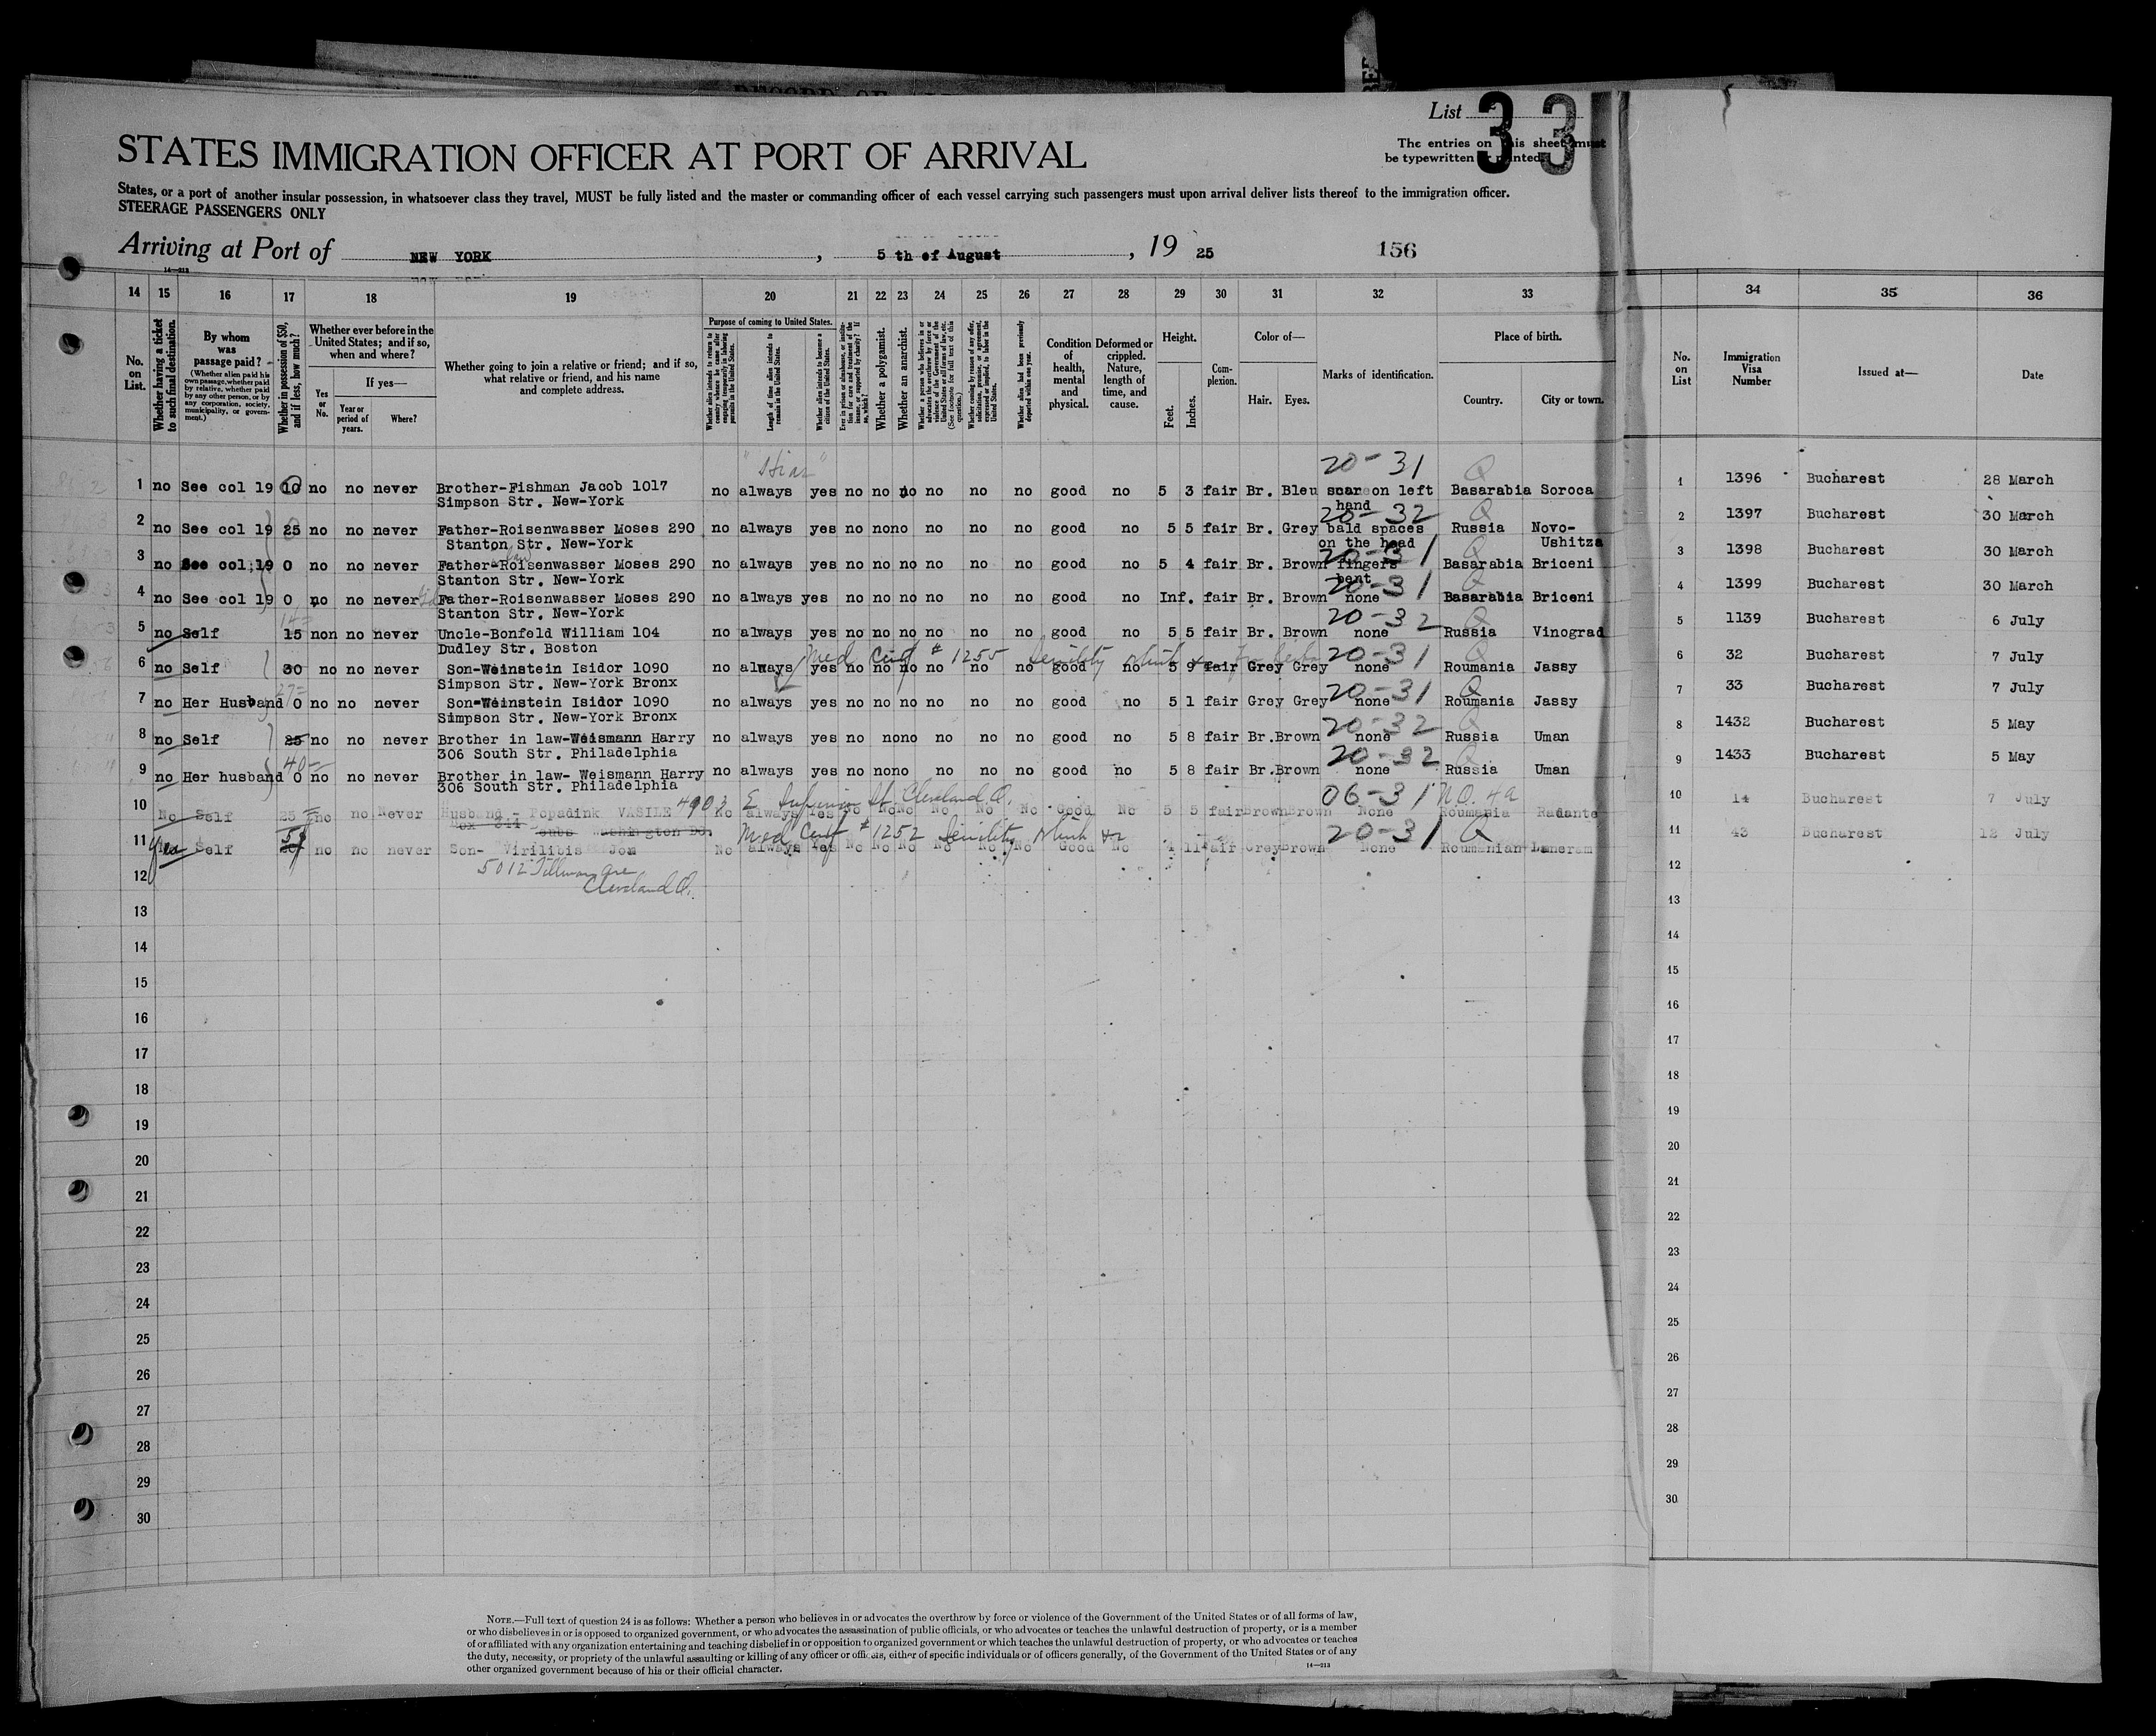 List 33
The entries on this sheet must
be typewritten or printed.
STATES IMMIGRATION OFFICER AT PORT OF ARRIVAL
States, or a port of another insular possession, in whatsoever class they travel, MUST be fully listed and the master or commanding officer of each vessel carrying such passengers must upon arrival deliver lists thereof to the immigration officer.
STEERAGE PASSENGERS ONLY
Arriving at Port of NEW YORK, 5 th of August, 19 25 156
14—213
14 15 16 17 18 19 20 21 22 23 24 25 26 27 28 29 30 31 32 33 34 35 36
No. on List.
Whether having a ticket to such final destination.
By whom was passage paid?
(Whether alien paid his own passage, whether paid by relative, whether paid by any other person, or by any corporation, society, municipality, or government.)
Whether in possession of $50, and if less, how much?
Whether ever before in the United States; and if so, when and where?
Yes or No.
If yes—
Year or period of years.
Where?
Whether going to join a relative or friend; and if so, what relative or friend, and his name and complete address.
Purpose of coming to United States.
Whether alien intends to return to country whence he came after engaging temporarily in laboring pursuits in the United States.
Length of time alien intends to remain in the United States.
Whether alien intends to become a citizen of the United States.
Whether a polygamist.
Whether an anarchist.
Condition of health, mental and physical.
Deformed or crippled. Nature, length of time, and cause.
Height.
Feet.
Inches.
Complexion.
Color of—
Hair.
Eyes.
Marks of identification.
Place of birth.
Country.
City or town.
No. on List
Immigration Visa Number
Issued at—
Date
"Hias" 20-31 Q
1 no See col 19 10 no no never Brother-Fishman Jacob 1017 no always yes no no no no no no good no 5 3 fair Br. Bleu scar on left Basarabia Soroca 1 1396 Bucharest 28 March
Simpson Str. New-York hand
20-32 Q
2 no See col 19 25 no no never Father-Roisenwasser Moses 290 no always yes no nono no no no good no 5 5 fair Br. Grey bald spaces Russia Novo- 2 1397 Bucharest 30 March
Stanton Str. New-York on the head Ushitza
law 20-31 Q
3 no See col 19 0 no no never Father-Roisenwasser Moses 290 no always yes no no no no no no good no 5 4 fair Br. Brown fingers Basarabia Briceni 3 1398 Bucharest 30 March
Stanton Str. New-York bent
20-31 Q
4 no See col 19 0 no no never Father-Roisenwasser Moses 290 no always yes no no no no no no good no Inf. fair Br. Brown none Basarabia Briceni 4 1399 Bucharest 30 March
Stanton Str. New-York
20-32 Q
5 no Self 15 non no never Uncle-Bonfeld William 104 no always yes no no no no no no good no 5 5 fair Br. Brown none Russia Vinograd 5 1139 Bucharest 6 July
Dudley Str. Boston
Med Cert # 1255 Senility 20-31 Q
6 no Self 30 no no never Son-Weinstein Isidor 1090 no always yes no no no no no no good no 5 9 fair Grey Grey none Roumania Jassy 6 32 Bucharest 7 July
Simpson Str. New-York Bronx
27 20-31 Q
7 no Her Husband 0 no no never Son-Weinstein Isidor 1090 no always yes no no no no no no good no 5 1 fair Grey Grey none Roumania Jassy 7 33 Bucharest 7 July
Simpson Str. New-York Bronx
20-32 Q
8 no Self 25 no no never Brother in law-Weismann Harry no always yes no nono no no no good no 5 8 fair Br.Brown none Russia Uman 8 1432 Bucharest 5 May
306 South Str. Philadelphia
40 20-32 Q
9 no Her husband 0 no no never Brother in law- Weismann Harry no always yes no nono no no no good no 5 8 fair Br.Brown none Russia Uman 9 1433 Bucharest 5 May
306 South Str. Philadelphia
4903 E Superior St. Cleveland O. 06-31 N.Q. 4a
10 No Self 25 no no Never Husband - Popadink VASILE No always Yes No NoNo No No No Good No 5 5 fairBrownBrown None Roumania Radante 10 14 Bucharest 7 July
Box 344 Washington DO.
Med Cert # 1252 Senility 20-31 Q
11 Yes Self no no never Son- Virilibis Jom No always Yes No No No No No No Good No 4 11 fair Grey Brown None Roumanian Lancram 11 43 Bucharest 12 July
5012 Tillman Ave
Cleveland O.
12 12
13 13
14 14
15 15
16 16
17 17
18 18
19 19
20 20
21 21
22 22
23 23
24 24
25 25
26 26
27 27
28 28
29 29
30 30
NOTE.—Full text of question 24 is as follows: Whether a person who believes in or advocates the overthrow by force or violence of the Government of the United States or of all forms of law,
or who disbelieves in or is opposed to organized government, or who advocates the assassination of public officials, or who advocates or teaches the unlawful destruction of property, or is a member
of or affiliated with any organization entertaining and teaching disbelief in or opposition to organized government or which teaches the unlawful destruction of property, or who advocates or teaches
the duty, necessity, or propriety of the unlawful assaulting or killing of any officer or officers, either of specific individuals or of officers generally, of the Government of the United States or of any
other organized government because of his or their official character.
14—213